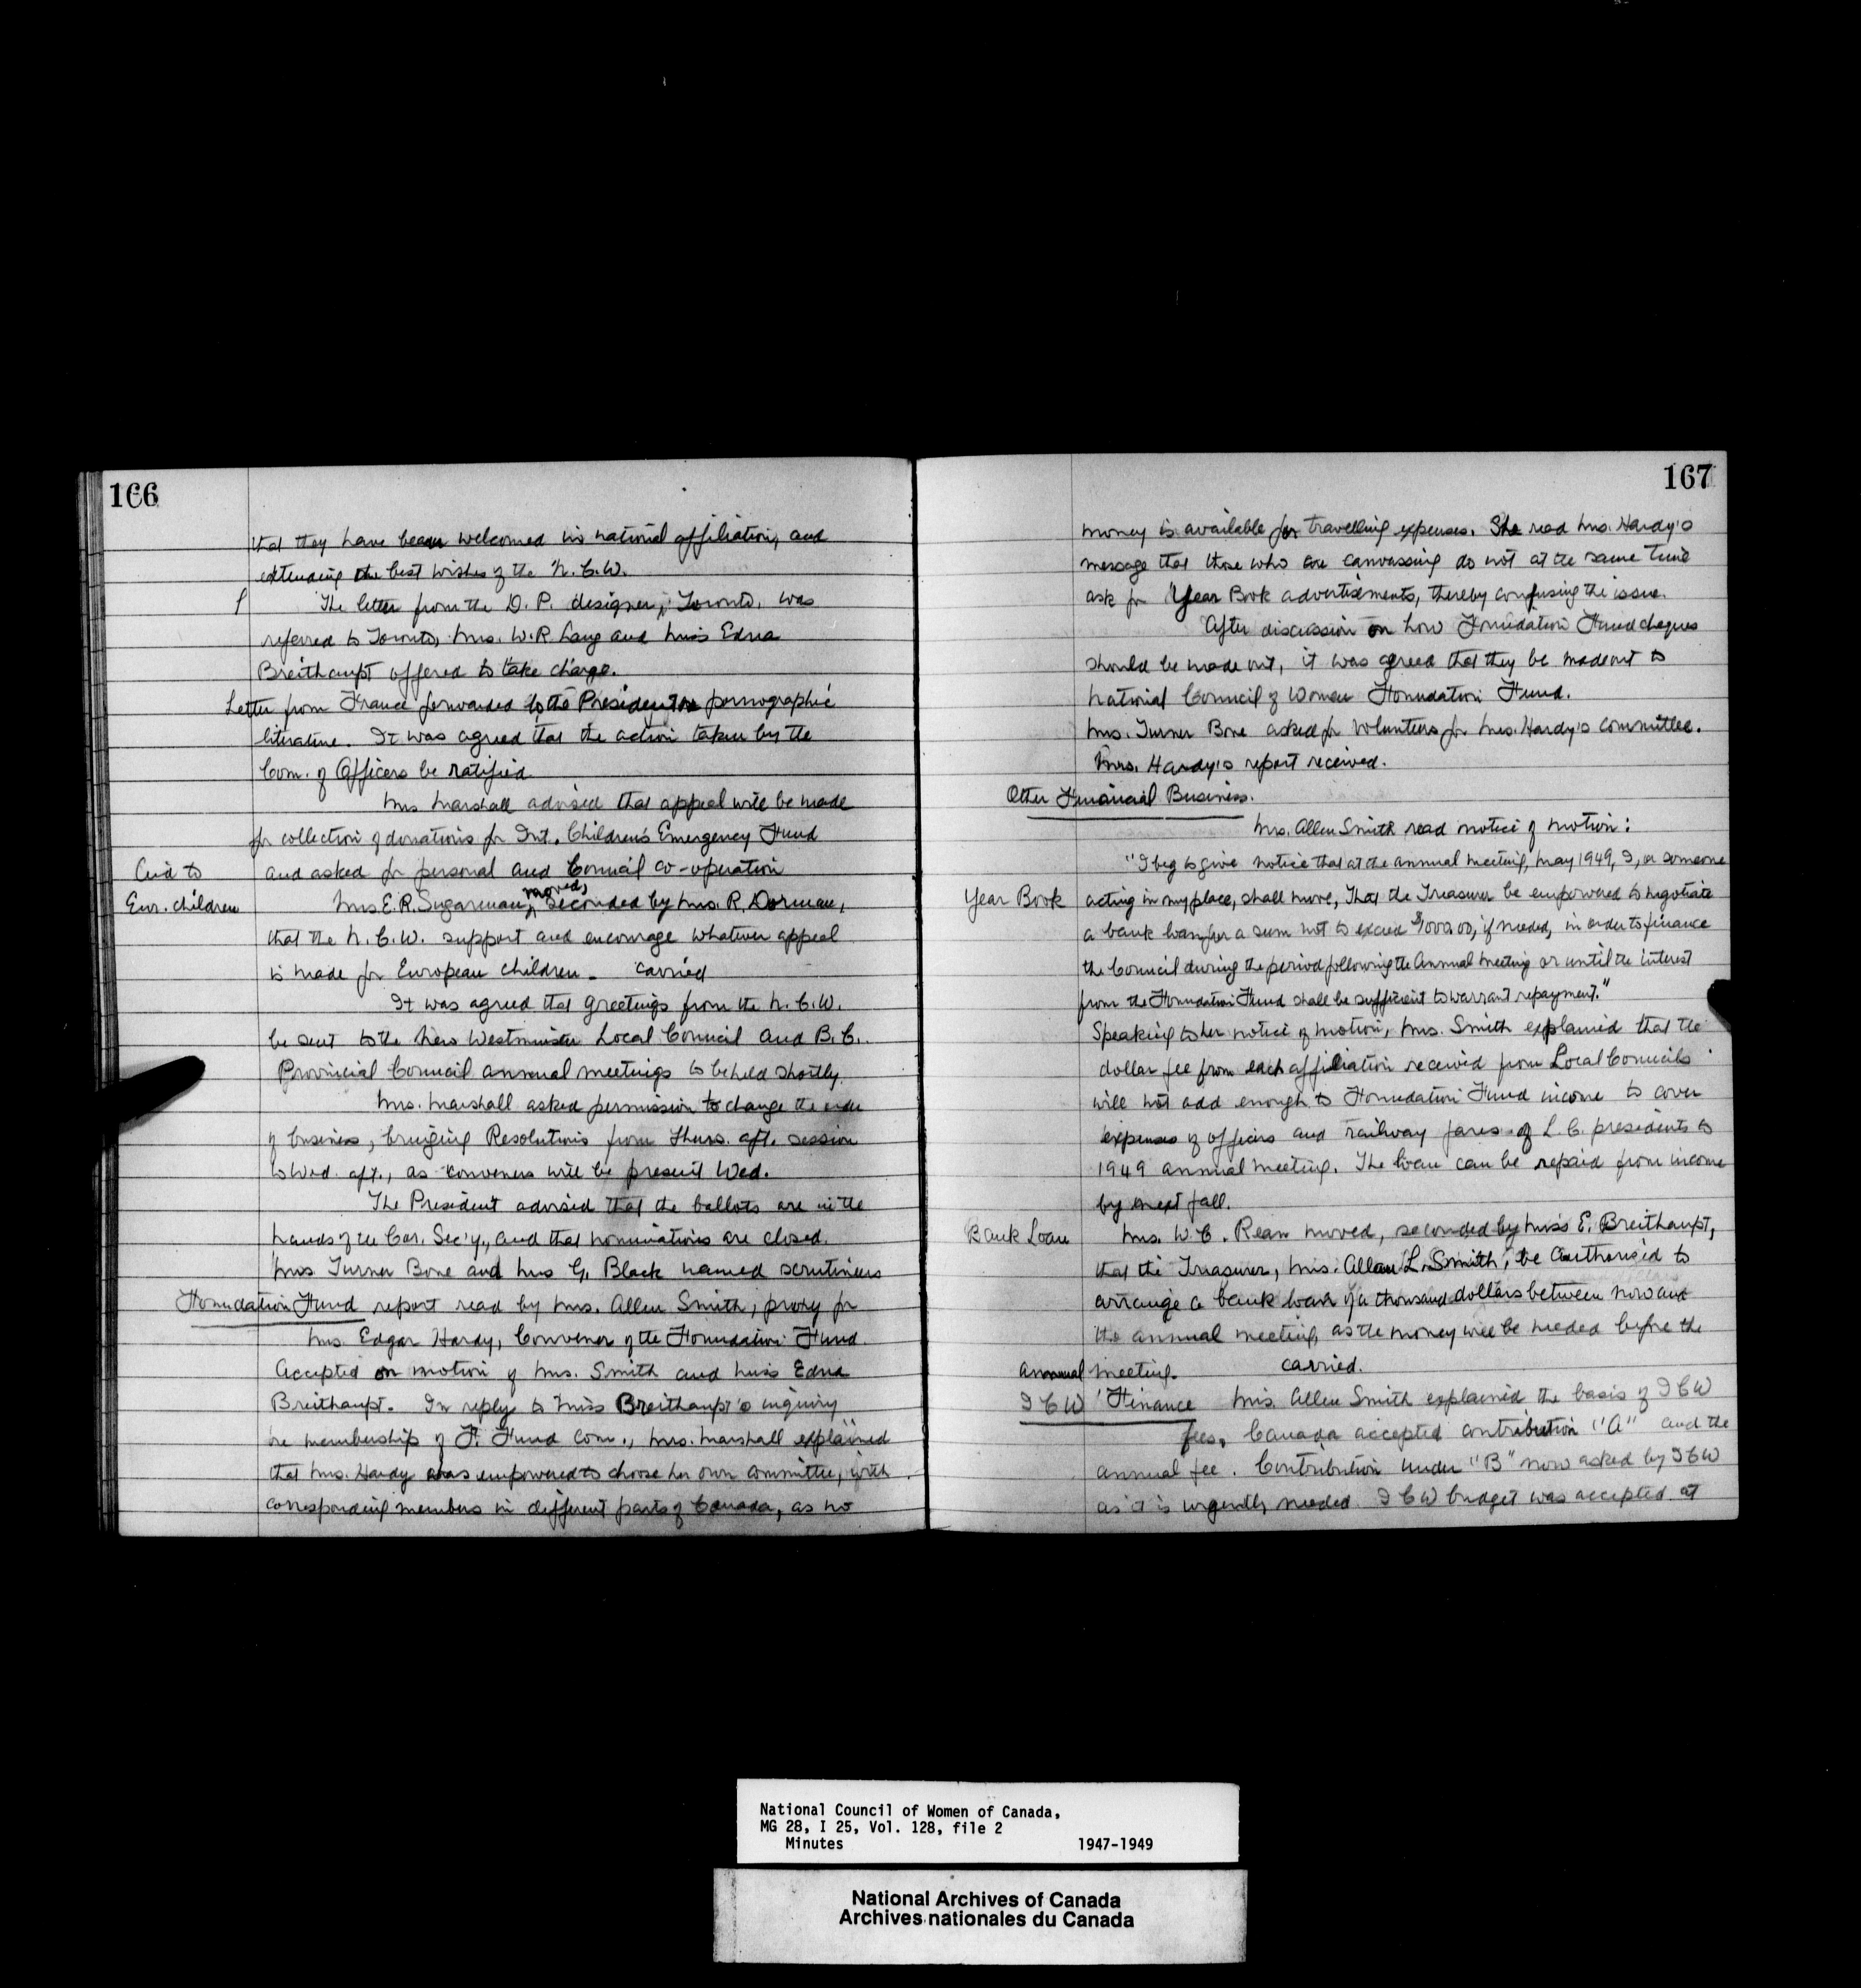 166
that they have been welcomed in national affiliation, and
extending the best wishes of the N.C.W.
The letter from the D.P. designer, Toronto, was
referred to Toronto, Mrs. W.R. Lang and Miss Edna
Breithaupt offered to take charge.
Letter from France forwarded to the President re pornographic
literature. It was agreed that the action taken by the
Com. of Officers be ratified
Mrs. Marshall advised that appeal will be made
for collection of donations for Int. Children's Emergency Fund
Aid to and asked for personal and Council co-operation
Eur. children Mrs. E.R. Sugarman, moved, seconded by Mrs. R. Dorman,
that the N.C.W. support and encourage whatever appeal
is made for European children. carried
It was agreed that greetings from the N.C.W.
be sent to the New Westminster Local Council and B.C.
Provincial Council annual meetings to be held shortly.
Mrs. Marshall asked permission to change the order
of business, bringing Resolutions from Thurs. aft. session
to Wed. aft., as conveners will be present Wed.
The President advised that the ballots are in the
hands of the Cor. Sec'y., and that nominations are closed.
Mrs Turner Bone and Mrs G. Black named scrutineers
Foundation Fund report read by Mrs. Allen Smith, proxy for
Mrs. Edgar Hardy, Convener of the Foundation Fund.
Accepted on motion of Mrs. Smith and Miss Edna
Breithaupt. In reply to Miss Breithaupt's inquiry
re membership of F. Fund Com., Mrs. Marshall explained
that Mrs. Hardy was empowered to choose her own committee, with
corresponding members in different parts of Canada, as no
167
money is available for travelling expenses. She read Mrs. Hardy's
message that those who are canvassing do not at the same time
ask for Year Book advertisements, thereby confusing the issue.
After discussion on how Foundation Fund cheques
should be made out, it was agreed that they be made out to
National Council of Women Foundation Fund.
Mrs. Turner Bone asked for volunteers for Mrs. Hardy's committee.
Mrs. Hardy's report received.
Other Financial Business.
Mrs. Allen Smith read notice of motion:
"I beg to give notice that at the annual meeting, May 1949, I, or someone
Year Book acting in my place, shall move, That the Treasurer be empowered to negotiate
a bank loan, for a sum not to exceed $1000.00, if needed, in order to finance
the Council during the period following the Annual Meeting or until the interest
from the Foundation Fund shall be sufficient to warrant repayment."
Speaking to her notice of motion, Mrs. Smith explained that the
dollar fee from each affiliation received from Local Councils
will not add enough to Foundation Fund income to cover
expenses of officers and railway fares of L.C. presidents to
1949 annual meeting. The loan can be repaid from income
by next fall.
Bank Loan Mrs. W.C. Rean moved, seconded by Miss E. Breithaupt,
that the Treasurer, Mrs. Allan L. Smith, be authorised to
arrange a bank loan of a thousand dollars between now and
the annual meeting, as the money will be needed before the
annual meeting. carried.
ICW Finance Mrs. Allen Smith explained the basis of ICW
fees. Canada accepted contribution "A" and the
annual fee. Contribution under "B" now asked by ICW
as it is urgently needed. ICW budget was accepted at
National Council of Women of Canada,
MG 28, I 25, Vol. 128, file 2
Minutes 1947-1949
National Archives of Canada
Archives nationales du Canada